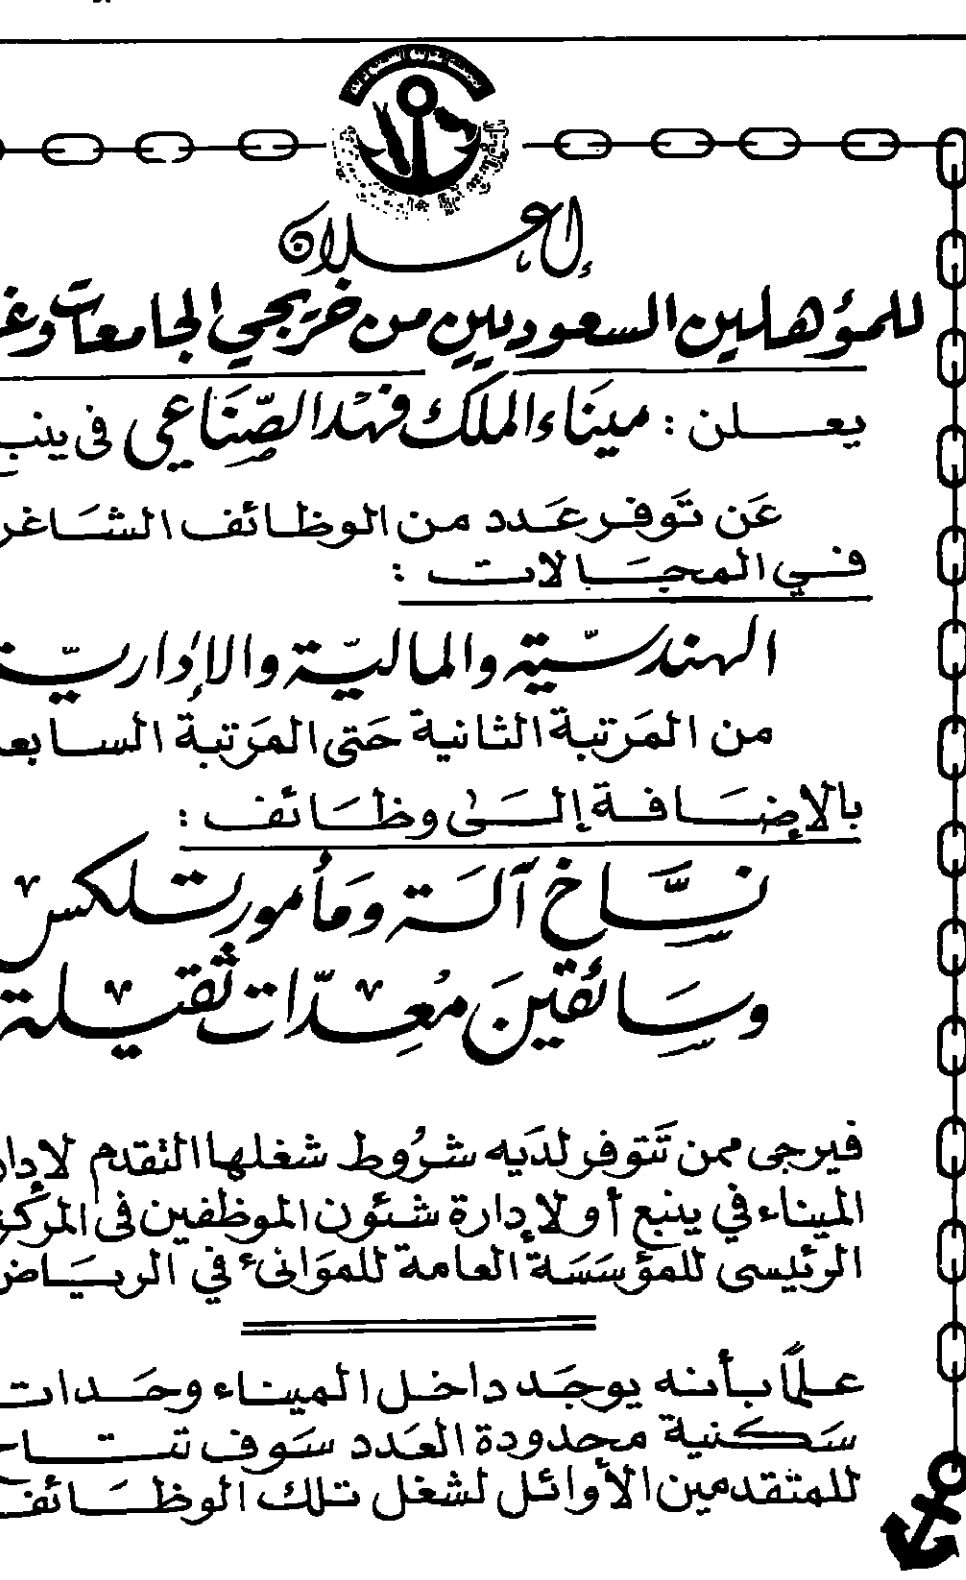 إعلان
للمؤهلين السعوديين من خريجي الجامعات
يعلن : ميناء الملك فهد الصناعي في
عن توفر عدد من الوظائف
في المجالات :
الهندسية والمالية والإدارية
من المرتبة الثانية حتى المرتبة
بالإضافة إلى وظائف :
نساخ آلة ومأمور تلكس
وسائقين معدات ثقيلة
فيرجى ممن تتوفر لديه شروط شغلها التقدم
الميناء في ينبع أو لإدارة شئون الموظفين في
الرئيسي للمؤسسة العامة للموانئ في الرياض
علما بأنه يوجد داخل الميناء وحدات
سكنية محدودة العدد سوف
للمتقدمين الأوائل لشغل تلك الوظائف